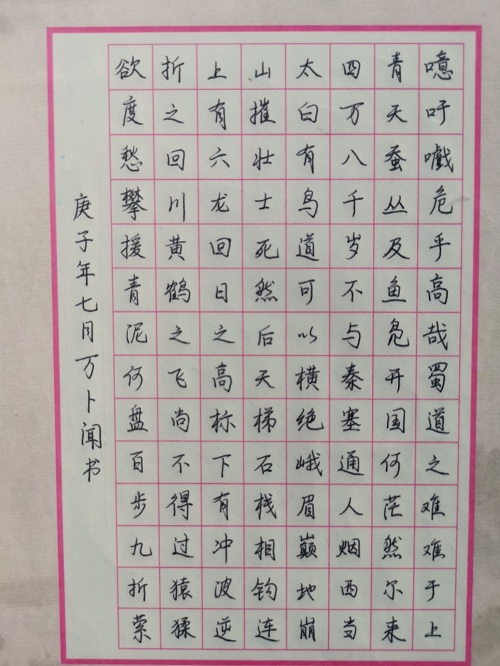 噫吁嚱危乎高哉蜀道之难难于上
青天蚕丛及鱼凫开国何茫然尔来
四万八千岁不与秦塞通人烟西当
太白有鸟道可以横绝峨眉巅地崩
山摧壮士死然后天梯石栈相钩连
上有六龙回日之高标下有冲波逆
折之回川黄鹤之飞尚不得过猿猱
欲度愁攀援青泥何盘百步九折萦
庚子年七月万卜闻书